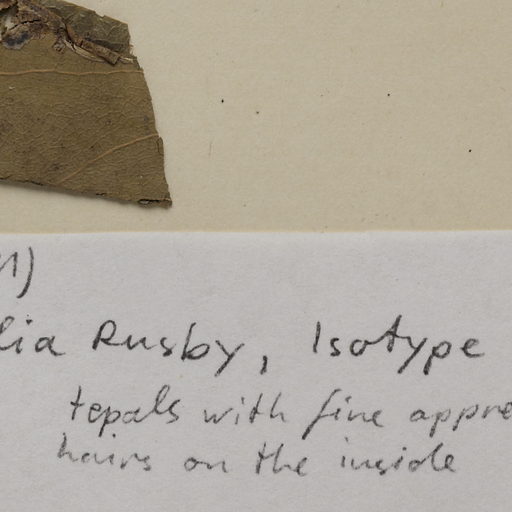 lia Rusby, Isotype
tepals with fine appre
hairs on the inside